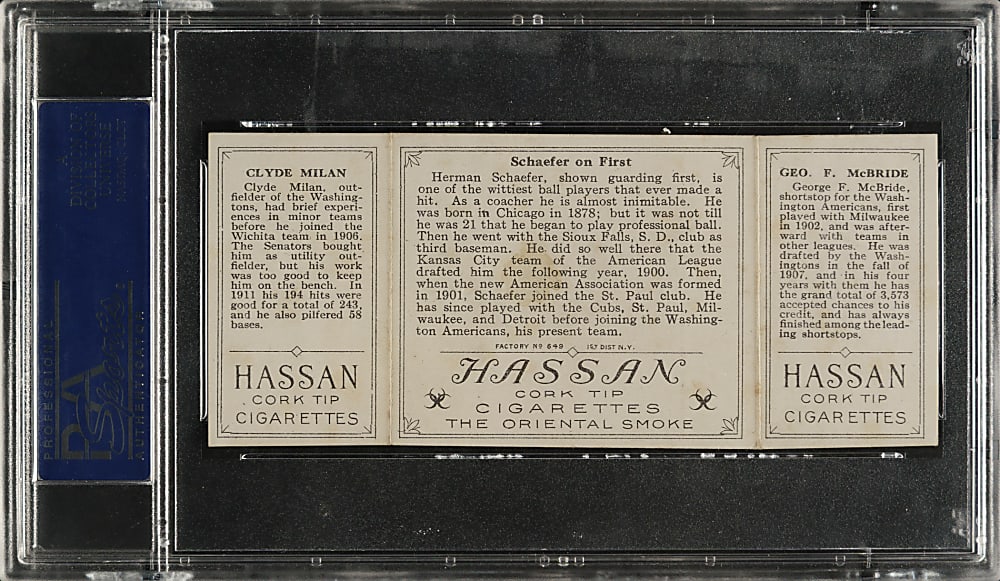 CLYDE MILAN
Clyde Milan, out-
fielder of the Washing-
tons, had brief experi-
ences in minor teams
before he joined the
Wichita team in 1906.
The Senators bought
him as utility out-
fielder, but his work
was too good to keep
him on the bench. In
1911 his 194 hits were
good for a total of 243,
and he also pilfered 58
bases.
HASSAN
CORK TIP
CIGARETTES
Schaefer on First
Herman Schaefer, shown guarding first, is
one of the wittiest ball players that ever made a
hit. As a coacher he is almost inimitable. He
was born in Chicago in 1878; but it was not till
he was 21 that he began to play professional ball.
Then he went with the Sioux Falls, S. D., club as
third baseman. He did so well there that the
Kansas City team of the American League
drafted him the following year, 1900. Then,
when the new American Association was formed
in 1901, Schaefer joined the St. Paul club. He
has since played with the Cubs, St. Paul, Mil-
waukee, and Detroit before joining the Washing-
ton Americans, his present team.
FACTORY Nº 649 1ST DIST N.Y.
HASSAN
CORK TIP
CIGARETTES
THE ORIENTAL SMOKE
GEO. F. McBRIDE
George F. McBride,
shortstop for the Wash-
ington Americans, first
played with Milwaukee
in 1902, and was after-
ward with teams in
other leagues. He was
drafted by the Wash-
ingtons in the fall of
1907, and in his four
years with them he has
the grand total of 3,573
accepted chances to his
credit, and has always
finished among the lead-
ing shortstops.
HASSAN
CORK TIP
CIGARETTES
PROFESSIONAL
PSA
Sports
AUTHENTICATOR
A
DIVISION OF
COLLECTORS
UNIVERSE
NASDAQ: CLCT